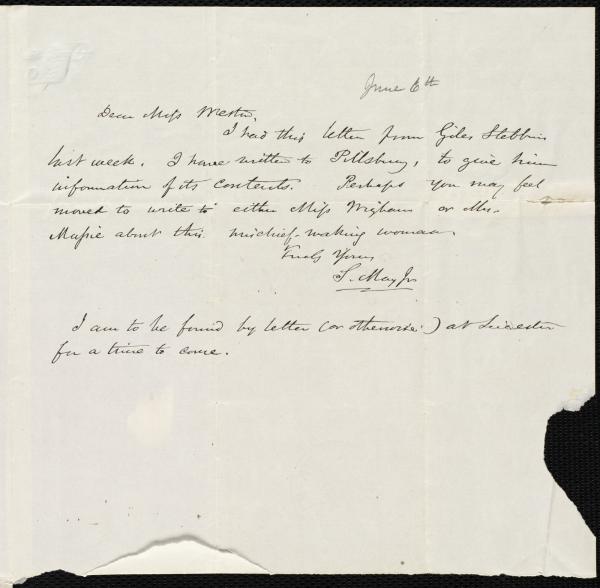 June 6th
Dear Miss Weston,
I had this letter from Giles Stebbins
last week. I have written to Pillsbury, to give him
information of its contents. Perhaps you may feel
moved to write to either Miss Wigham or Mrs.
Massie about this mischief-making woman.
Truly Yours,
S. May Jr.
I am to be found by letter (or otherwise) at Leicester
for a time to come.